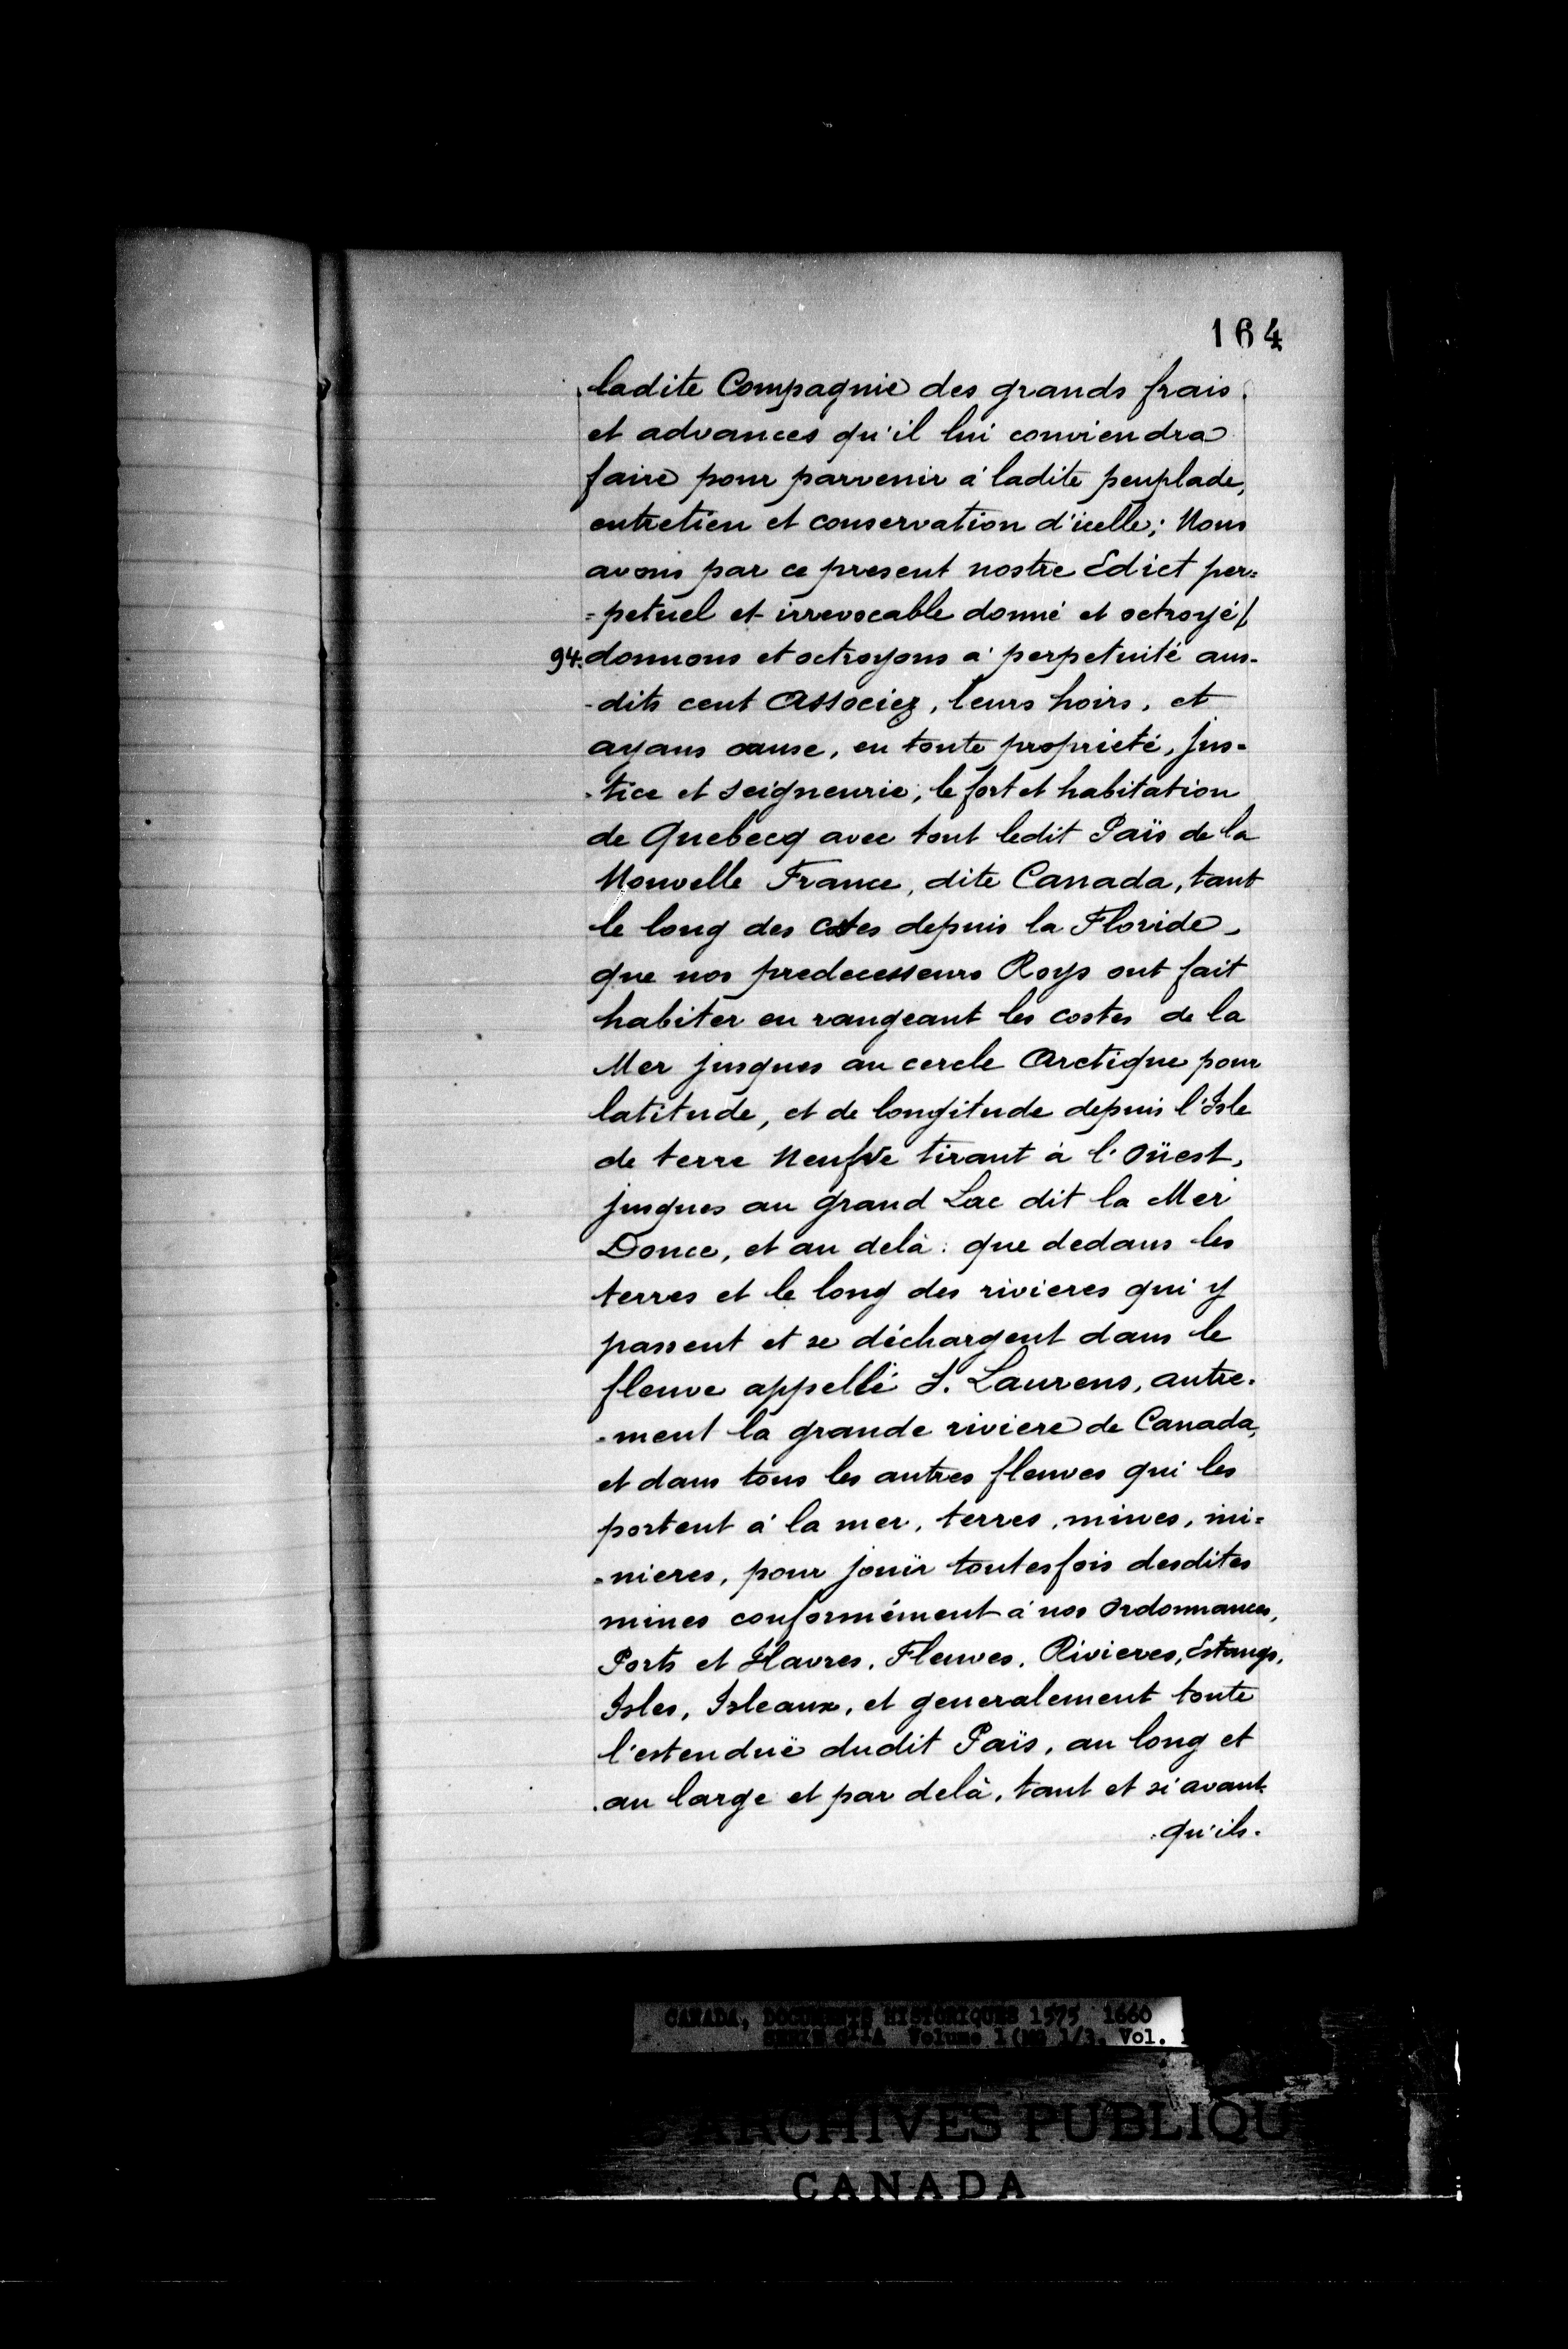 164
ladite Compagnie des grands frais
et advances qu'il lui conviendra
faire pour parvenir à ladite peuplade,
entretien et conservation d'icelle; Nous
avons par ce present nostre Edict per=
=petuel et irrevocable donné et octroyé/
94. donnons et octroyons à perpetuité aus-
-dits cent Associez, leurs hoirs, et
ayans cause, en toute proprieté, Jus-
-tice et Seigneurie, le fort et habitation
de Quebecq avec tout ledit Païs de la
Nouvelle France, dite Canada, tant
le long des Costes depuis la Floride,
que nos predecesseurs Roys ont fait
habiter en rangeant les costes de la
Mer jusques au cercle Arctique pour
latitude, et de longitude depuis l'Isle
de terre Neufve tirant à l'Oüest,
jusques au grand Lac dit la Mer
Douce, et au delà: que dedans les
terres et le long des rivieres qui y
passent et se déchargent dans le
fleuve appellé S. Laurens, autre-
-ment la grande riviere de Canada,
et dans tous les autres fleuves qui les
portent à la mer, terres, mines, mi=
-nieres, pour jouïr toutesfois desdites
mines conformément à nos Ordonnances,
Ports et Havres, Fleuves, Rivieres, Estangs,
Isles, Isleaux, et generalement toute
l'estenduë dudit Païs, au long et
au large et par delà, tant et si avant
qu'ils.
CANADA, DOCUMENTS HISTORIQUES 1575 1660
SERIE C11A Volume 1 (MG 1/3, Vol. 1
ARCHIVES PUBLIQU
CANADA